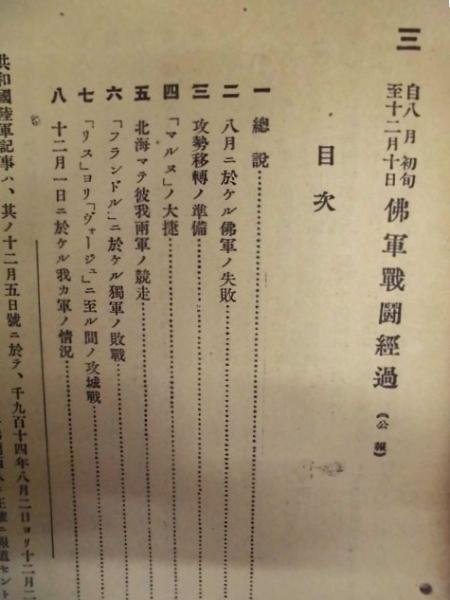 三
自八月初旬
至十二月十日
佛軍戰鬪經過（公報）
目次
一 總說
二 八月ニ於ケル佛軍ノ失敗
三 攻勢移轉ノ準備
四 「マルヌ」ノ大捷
五 北海マテ彼我兩軍ノ競走
六 「フランドル」ニ於ケル獨軍ノ敗戰
七 「リス」ヨリ「ヴォージュ」ニ至ル間ノ攻城戰
八 十二月一日ニ於ケル我カ軍ノ情況
共和國陸軍記事ハ、其ノ十二月五日號ニ於テ、千九百十四年八月二日ヨリ十二月二